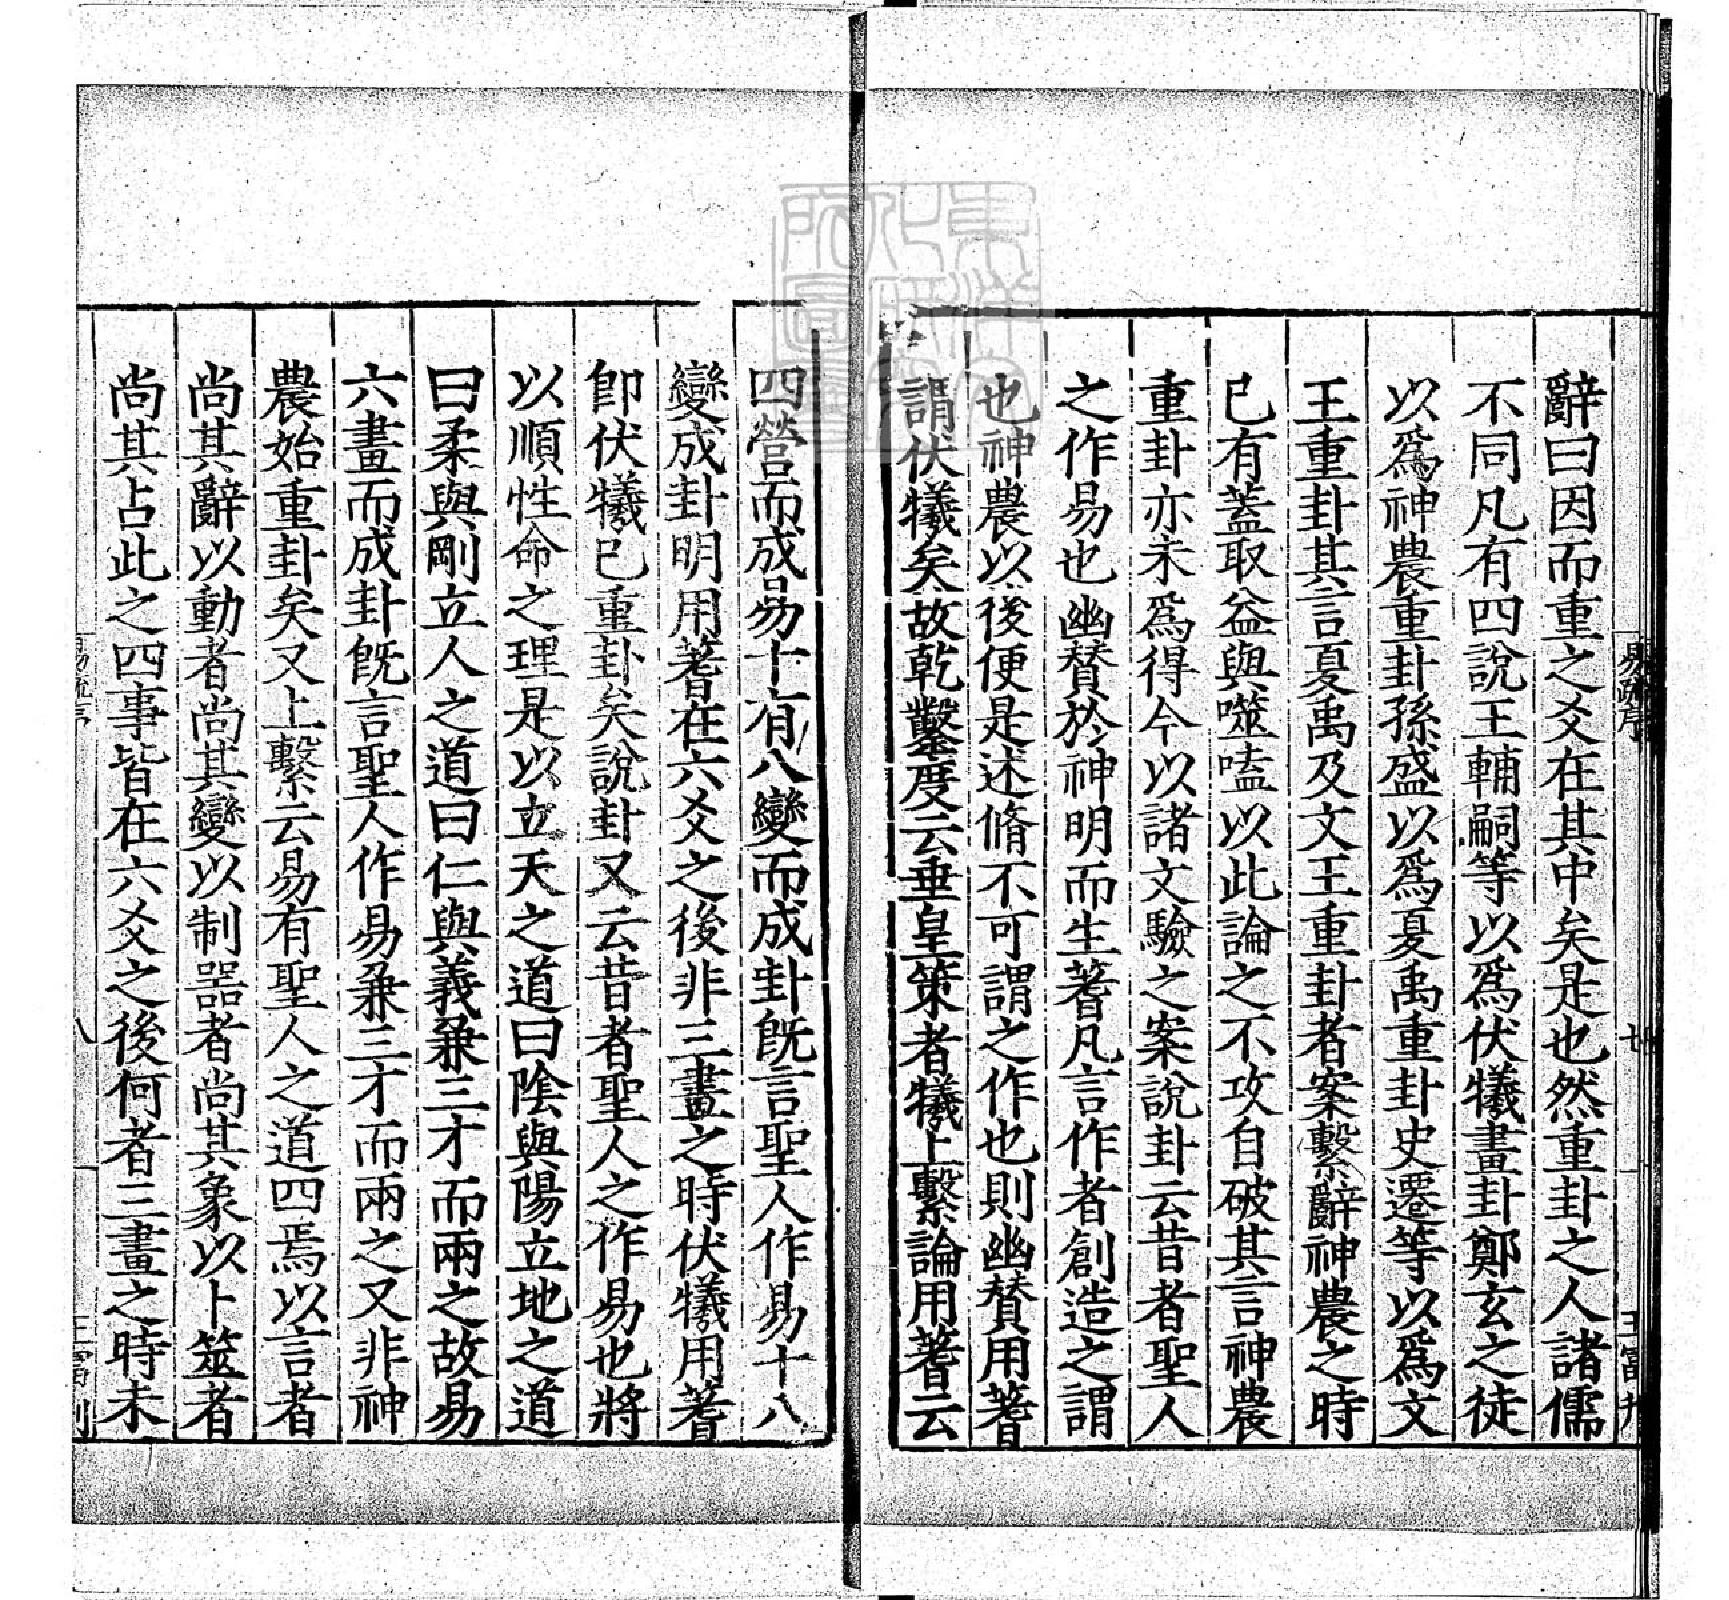 辭曰因而重之爻在其中矣是也然重卦之人諸儒
不同凡有四說王輔嗣等以爲伏犧畫卦鄭玄之徒
以爲神農重卦孫盛以爲夏禹重卦史遷等以爲文
王重卦其言夏禹及文王重卦者案繫辭神農之時
已有蓋取益與噬嗑以此論之不攻自破其言神農
重卦亦未爲得今以諸文驗之案說卦云昔者聖人
之作易也幽賛於神明而生蓍凡言作者創造之謂
也神農以後便是述脩不可謂之作也則幽賛用蓍
謂伏犧矣故乾鑿度云垂皇策者犧上繫論用蓍云
四營而成易十有八變而成卦旣言聖人作易十八
變成卦明用蓍在六爻之後非三畫之時伏犧用蓍
卽伏犧已重卦矣說卦又云昔者聖人之作易也將
以順性命之理是以立天之道曰陰與陽立地之道
曰柔與剛立人之道曰仁與義兼三才而兩之故易
六畫而成卦旣言聖人作易兼三才而兩之又非神
農始重卦矣又上繫云易有聖人之道四焉以言者
尚其辭以動者尚其變以制器者尚其象以卜筮者
尚其占此之四事皆在六爻之後何者三畫之時未